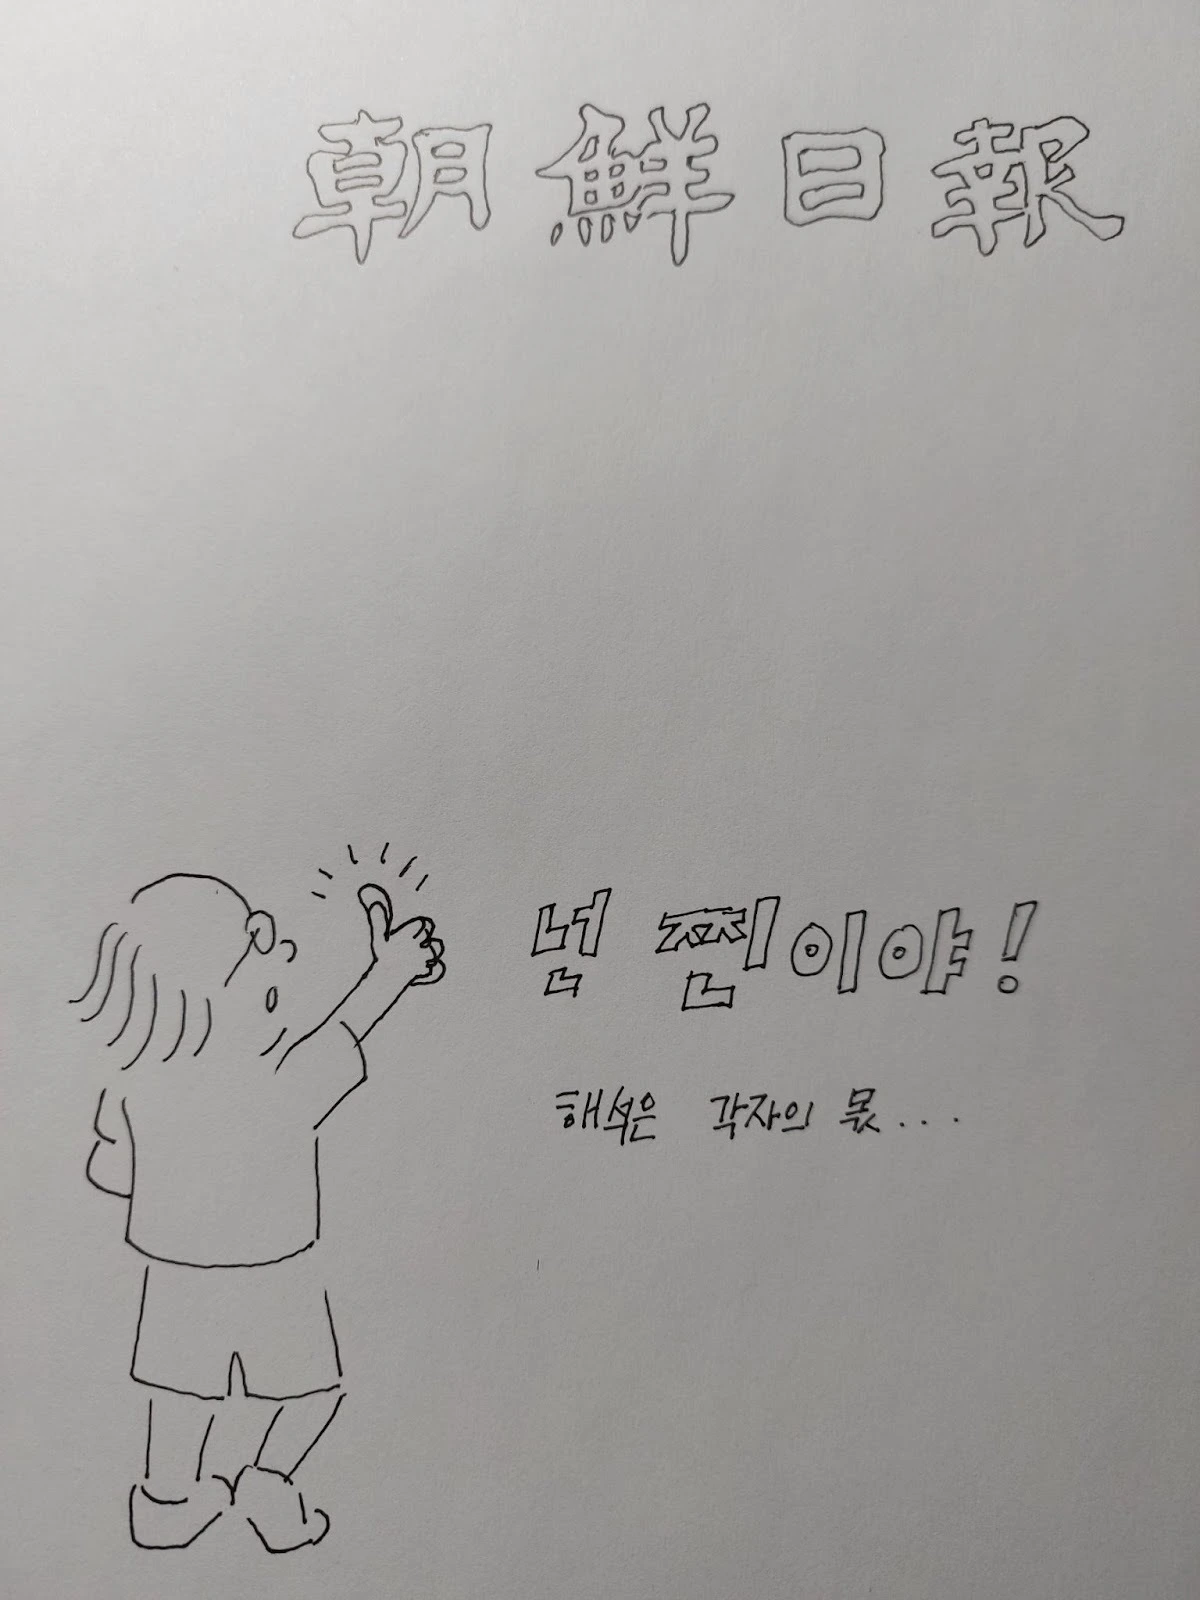 朝鮮日報
넌 찐이야!
해석은 각자의 몫...